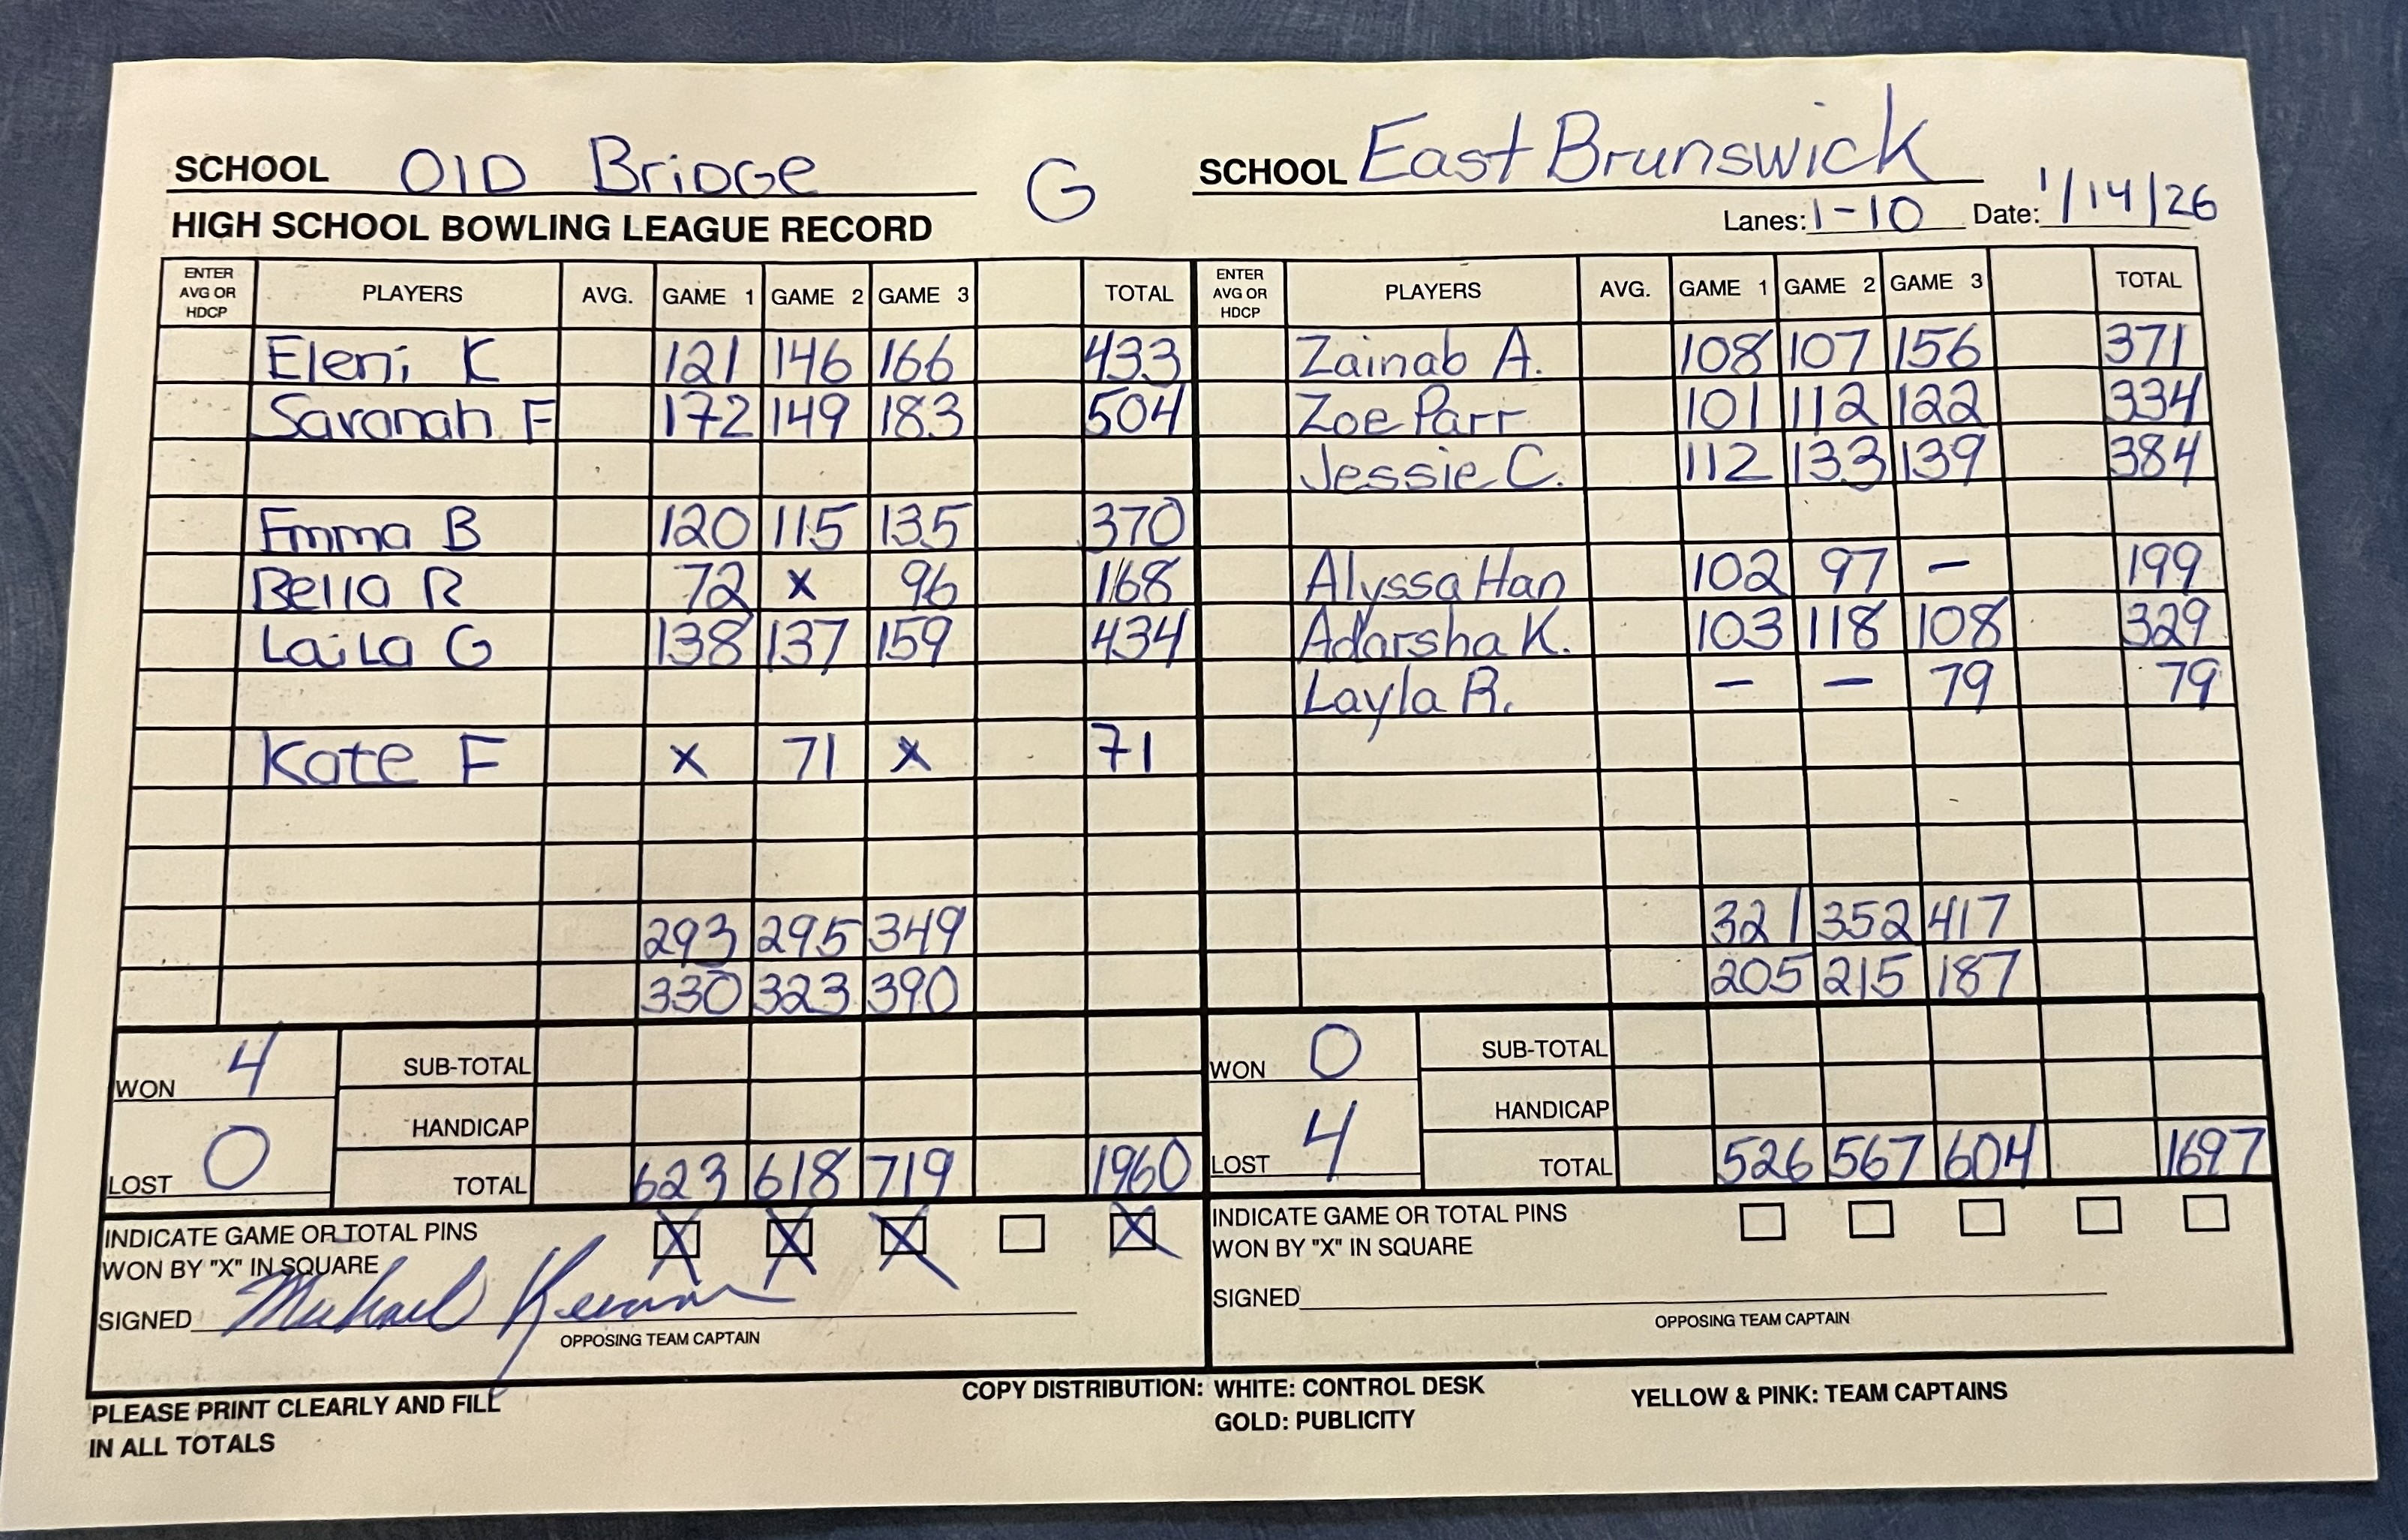 SCHOOL OLD Bridge G SCHOOL East Brunswick
HIGH SCHOOL BOWLING LEAGUE RECORD Lanes: 1-10 Date: 1/14/26
ENTER AVG OR HDCP PLAYERS AVG. GAME 1 GAME 2 GAME 3 TOTAL ENTER AVG OR HDCP PLAYERS AVG. GAME 1 GAME 2 GAME 3 TOTAL
Eleni K 121 146 166 433 Zainab A. 108 107 156 371
Savanah F 172 149 183 504 Zoe Parr 101 112 122 334
Jessie C. 112 133 139 384
Emma B 120 115 135 370
Bella R 72 x 96 168 Alyssa Han 102 97 - 199
Laila G 138 137 159 434 Adarsha K. 103 118 108 329
Layla R. - - 79 79
Kate F x 71 x 71
293 295 349 321 352 417
330 323 390 205 215 187
WON 4 SUB-TOTAL WON 0 SUB-TOTAL
HANDICAP HANDICAP
LOST 0 TOTAL 623 618 719 1960 LOST 4 TOTAL 526 567 604 1697
INDICATE GAME OR TOTAL PINS X X X X INDICATE GAME OR TOTAL PINS
WON BY "X" IN SQUARE WON BY "X" IN SQUARE
SIGNED Michael SIGNED
OPPOSING TEAM CAPTAIN OPPOSING TEAM CAPTAIN
PLEASE PRINT CLEARLY AND FILL COPY DISTRIBUTION: WHITE: CONTROL DESK YELLOW & PINK: TEAM CAPTAINS
IN ALL TOTALS GOLD: PUBLICITY